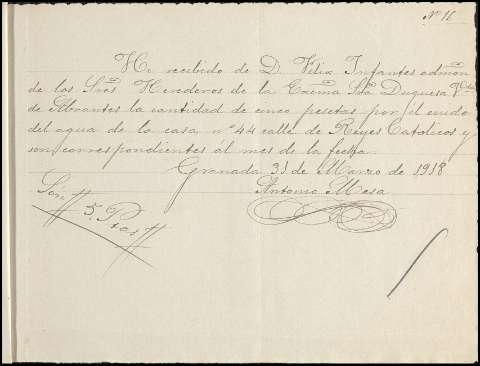 Nº 16
He recibido de D. Felix Infantes admon
de los Sres Herederos de la Exima Sra Duquesa Vda
de Abrantes la cantidad de cinco pesetas por el cuido
del agua de la casa nº 44 calle de Reyes Catolicos y
son correspondientes al mes de la fecha.
Granada 31 de Marzo de 1918
Antonio Mesa
Son 5. Ptas